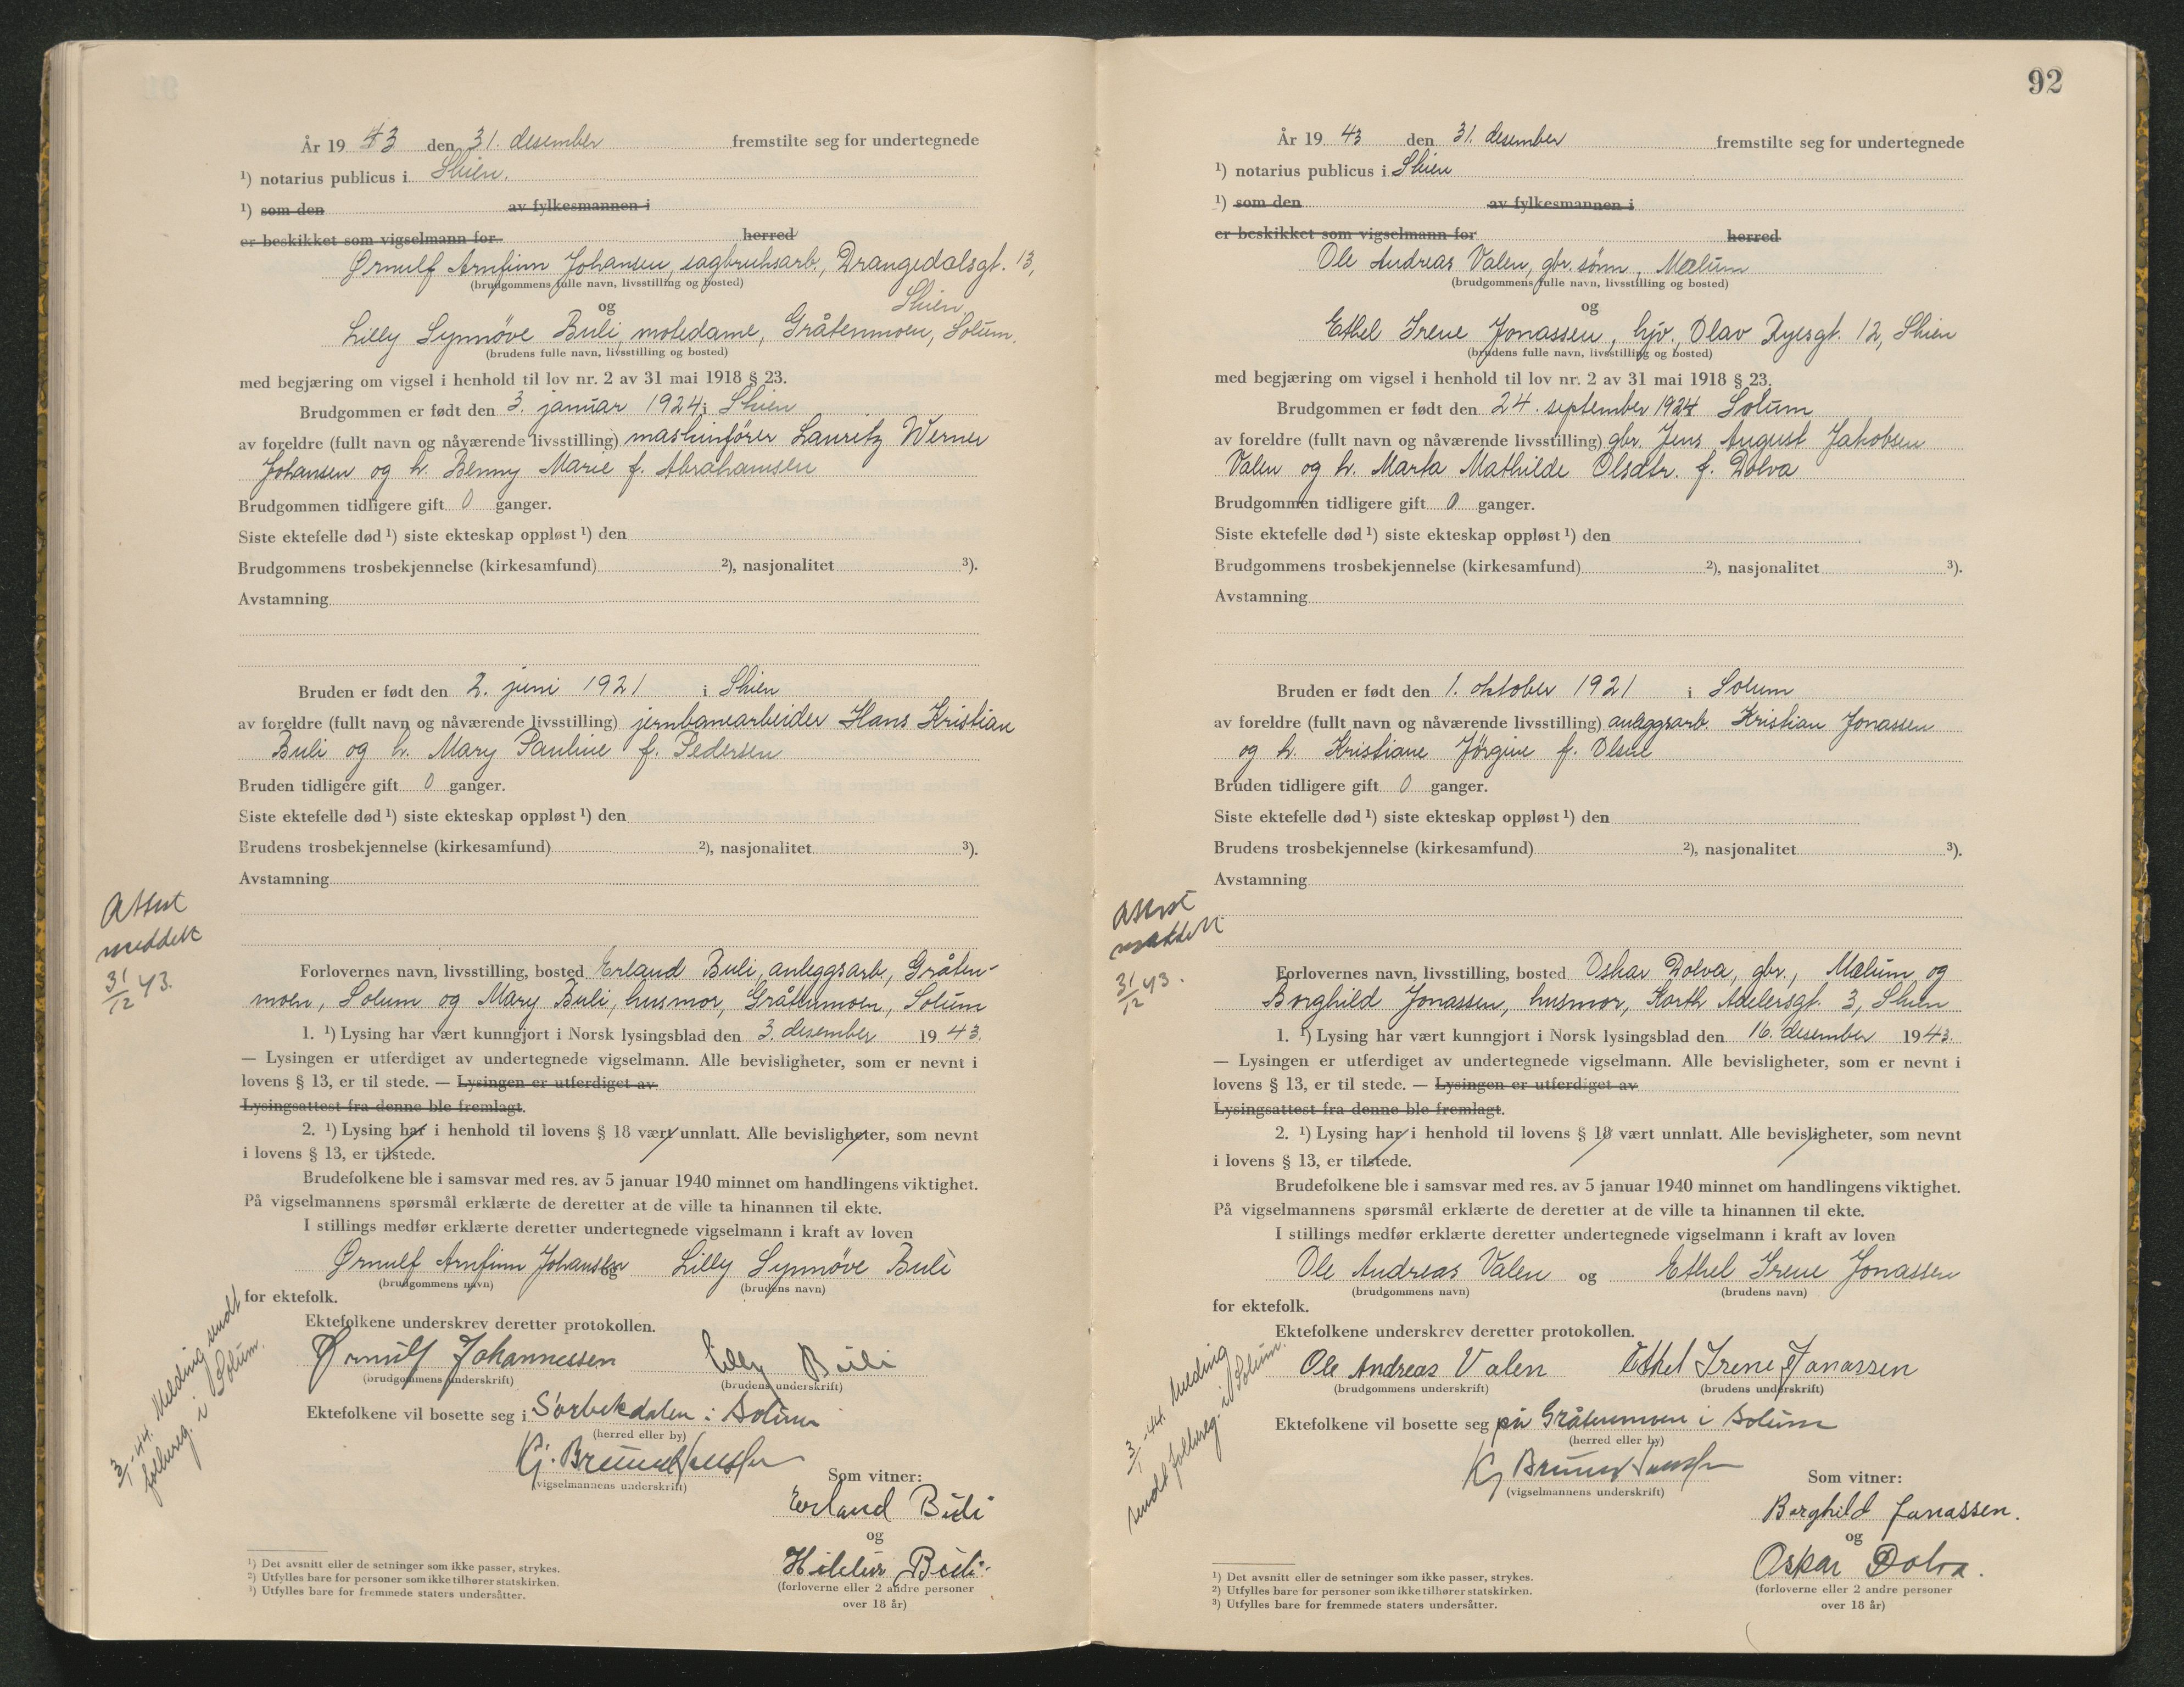 År 19 43 den 31. desember fremstilte seg for undertegnede
¹) notarius publicus i Skien.
¹) som den av fylkesmannen i
er beskikket som vigselmann for herred
Ørnulf Arnfinn Johansen, sagbruksarb., Drangedalsgt. 13,
(brudgommens fulle navn, livsstilling og bosted)
og Skien,
Lilly Synnøve Buli, motedame, Gråtenmoen, Solum.
(brudens fulle navn, livsstilling og bosted)
med begjæring om vigsel i henhold til lov nr. 2 av 31 mai 1918 § 23.
Brudgommen er født den 3. januar 1924 i Skien
av foreldre (fullt navn og nåværende livsstilling) maskinfører Lauritz Werner
Johansen og h. Benny Marie f. Abrahamsen
Brudgommen tidligere gift 0 ganger.
Siste ektefelle død ¹) siste ekteskap oppløst ¹) den
Brudgommens trosbekjennelse (kirkesamfund) ²), nasjonalitet ³).
Avstamning
Bruden er født den 2. juni 1921 i Skien
av foreldre (fullt navn og nåværende livsstilling) jernbanearbeider Hans Kristian
Buli og h. Mary Pauline f. Pedersen
Bruden tidligere gift 0 ganger.
Siste ektefelle død ¹) siste ekteskap oppløst ¹) den
Brudens trosbekjennelse (kirkesamfund) ²), nasjonalitet ³).
Avstamning
Attest
meddelt
31/12 43.
Forlovernes navn, livsstilling, bosted Erland Buli, anleggsarb, Gråten-
moen, Solum og Mary Buli, husmor, Gråtenmoen, Solum
1. ¹) Lysing har vært kunngjort i Norsk lysingsblad den 3. desember 19 43.
— Lysingen er utferdiget av undertegnede vigselmann. Alle bevisligheter, som er nevnt i
lovens § 13, er til stede. — Lysingen er utferdiget av
Lysingsattest fra denne ble fremlagt.
2. ¹) Lysing har i henhold til lovens § 18 vært unnlatt. Alle bevisligheter, som nevnt
i lovens § 13, er tilstede.
Brudefolkene ble i samsvar med res. av 5 januar 1940 minnet om handlingens viktighet.
På vigselmannens spørsmål erklærte de deretter at de ville ta hinannen til ekte.
I stillings medfør erklærte deretter undertegnede vigselmann i kraft av loven
Ørnulf Arnfinn Johansen og Lilly Synnøve Buli
(brudgommens navn) (brudens navn)
for ektefolk.
3/1-44. Melding sendt
folkereg. i Solum.
Ektefolkene underskrev deretter protokollen.
Ørnulf Johannessen Lilly Buli
(brudgommens underskrift) (brudens underskrift)
Ektefolkene vil bosette seg i Sørbekdalen i Solum
(herred eller by)
Kj.
(vigselmannens underskrift)
Som vitner:
Erland Buli
og
Buli
(forloverne eller 2 andre personer
over 18 år)
¹) Det avsnitt eller de setninger som ikke passer, strykes.
²) Utfylles bare for personer som ikke tilhører statskirken.
³) Utfylles bare for fremmede staters undersåtter.
92
År 19 43 den 31. desember fremstilte seg for undertegnede
¹) notarius publicus i Skien
¹) som den av fylkesmannen i
er beskikket som vigselmann for herred
Ole Andreas Valen, gbr. sønn, Mælum
(brudgommens fulle navn, livsstilling og bosted)
og
Ethel Irene Jonassen, hjv., Olav Ryesgt. 12, Skien
(brudens fulle navn, livsstilling og bosted)
med begjæring om vigsel i henhold til lov nr. 2 av 31 mai 1918 § 23.
Brudgommen er født den 24. september 1924 Solum
av foreldre (fullt navn og nåværende livsstilling) gbr. Jens August Jakobsen
Valen og h. Marta Mathilde Olsdtr. f. Dolva
Brudgommen tidligere gift 0 ganger.
Siste ektefelle død ¹) siste ekteskap oppløst ¹) den
Brudgommens trosbekjennelse (kirkesamfund) ²), nasjonalitet ³).
Avstamning
Bruden er født den 1. oktober 1921 i Solum
av foreldre (fullt navn og nåværende livsstilling) anleggsarb. Kristian Jonassen
og h. Kristiane Jørgine f. Olsen
Bruden tidligere gift 0 ganger.
Siste ektefelle død ¹) siste ekteskap oppløst ¹) den
Brudens trosbekjennelse (kirkesamfund) ²), nasjonalitet ³).
Avstamning
Attest
meddelt
31/12 43.
Forlovernes navn, livsstilling, bosted Oskar Dolva, gbr., Mælum og
Borghild Jonassen, husmor, Korth Adelersgt. 3, Skien
1. ¹) Lysing har vært kunngjort i Norsk lysingsblad den 16. desember 19 43.
— Lysingen er utferdiget av undertegnede vigselmann. Alle bevisligheter, som er nevnt i
lovens § 13, er til stede. — Lysingen er utferdiget av
Lysingsattest fra denne ble fremlagt.
2. ¹) Lysing har i henhold til lovens § 18 vært unnlatt. Alle bevisligheter, som nevnt
i lovens § 13, er tilstede.
Brudefolkene ble i samsvar med res. av 5 januar 1940 minnet om handlingens viktighet.
På vigselmannens spørsmål erklærte de deretter at de ville ta hinannen til ekte.
I stillings medfør erklærte deretter undertegnede vigselmann i kraft av loven
Ole Andreas Valen og Ethel Irene Jonassen
(brudgommens navn) (brudens navn)
for ektefolk.
3/1-44. Melding
sendt folkereg. i Solum.
Ektefolkene underskrev deretter protokollen.
Ole Andreas Valen Ethel Irene Jonassen
(brudgommens underskrift) (brudens underskrift)
Ektefolkene vil bosette seg på Gråtenmoen i Solum
(herred eller by)
Kj
(vigselmannens underskrift)
Som vitner:
Borghild Jonassen.
og
Oskar Dolva.
(forloverne eller 2 andre personer
over 18 år)
¹) Det avsnitt eller de setninger som ikke passer, strykes.
²) Utfylles bare for personer som ikke tilhører statskirken.
³) Utfylles bare for fremmede staters undersåtter.